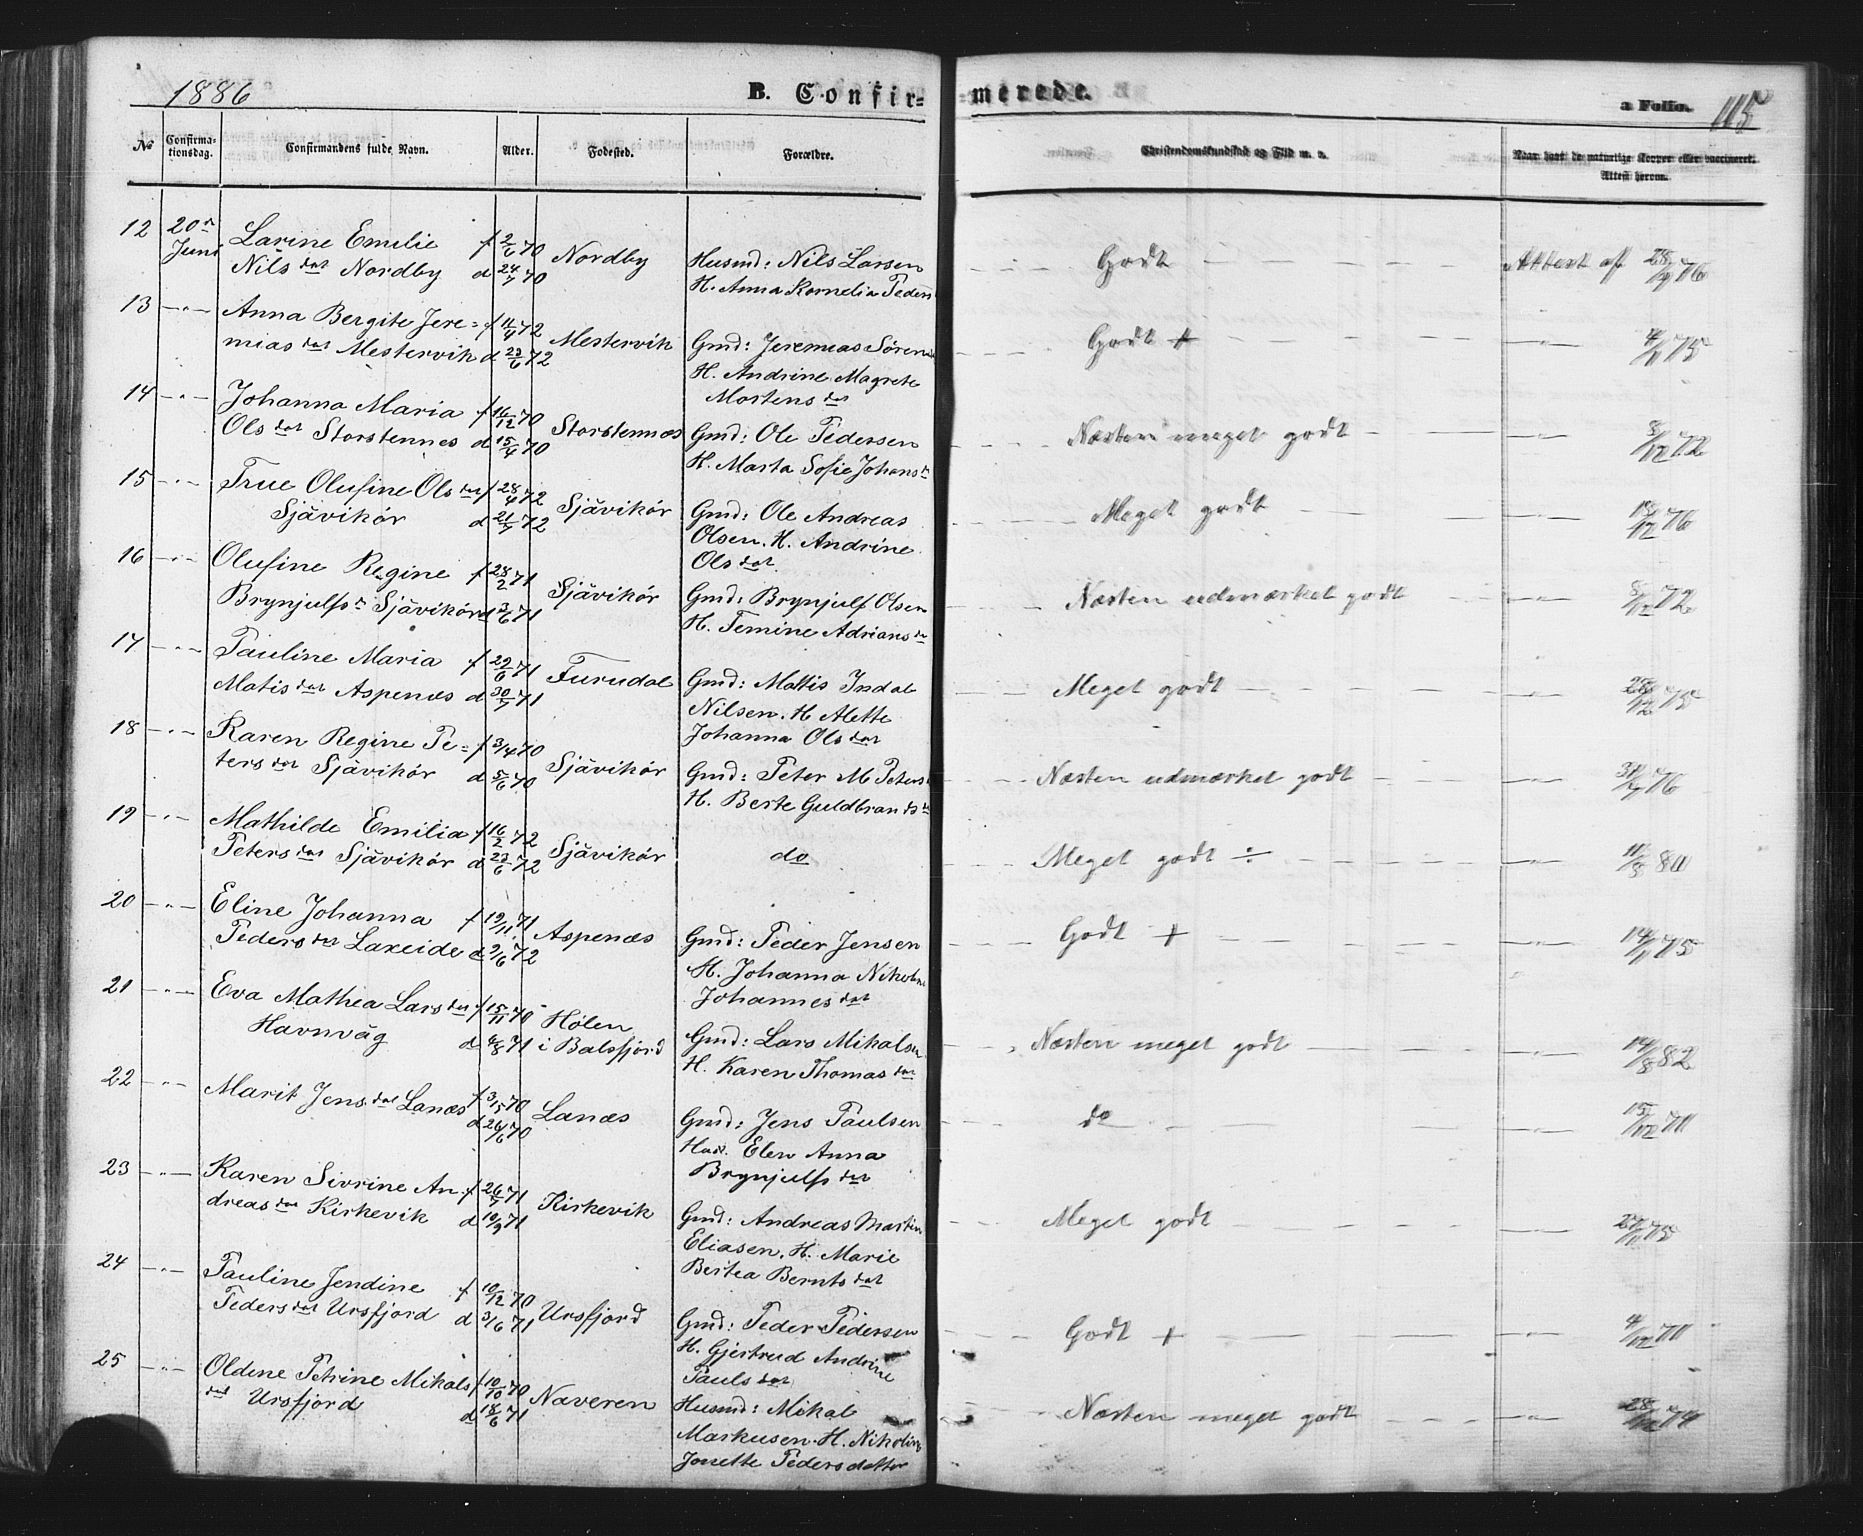 1886 B. Confir- merede. a Folio. 115
No Confirma- Confirmandens fulde Navn. Alder. Fødested. Forældre. Christendomskundskab og Flid m. v. Naar havt de naturlige Kopper eller vaccineret.
tionsdag. Attest herom.
12 20de Larine Emilie f 2/6 70 Nordby Husmd: Nils Larsen Godt Attest af 28/9 76
Juni Nils dat Nordby d 24/7 70 H. Anna Kornelia Peders
13 — " — Anna Bergite Jere= f 11/4 72 Mestervik Gmd: Jeremias Sörens Godt + — " — 4/11 75
mias dat Mestervik d 23/6 72 H. Andrine Magrete
Mortens dat
14 — " — Johanna Maria f 16/12 70 Storstennæs Gmd: Ole Pedersen Næsten meget godt — " — 8/12 72
Ols dat Storstennes d 15/4 70 H. Marta Sofie Johans d
15 — " — True Olufine Ols dat f 28/4 72 Sjåvikör Gmd: Ole Andreas Meget godt — " — 18/12 76
Sjåvikör d 21/7 72 Olsen. H. Andrine
Ols dat
16 — " — Olufine Regine f 28/2 71 Sjåvikör Gmd: Brynjulf Olsen Næsten udmærket godt — " — 8/12 72
Brynjulfs d Sjåvikör d 2/6 71 H. Temine Adrians da
17 — " — Pauline Maria f 29/6 71 Furudal Gmd: Mattis Indal Meget godt — " — 28/12 75
Matis dat Aspenæs d 30/7 71 Nilsen. H Alette
Johanna Ols dat
18 — " — Karen Regine Pe= f 3/4 70 Sjåvikör Gmd: Peter M Peters Næsten udmærket godt — " — 31/7 76
ters dat Sjåvikör d 5/6 70 H. Berte Guldbrands d
19 — " — Mathilde Emilia f 16/2 72 Sjåvikör do Meget godt ÷ — " — 11/8 80
Peters dat Sjåvikör d 23/6 72
20 — " — Eline Johanna f 19/11 71 Aspenæs Gmd: Peder Jensen Godt + — " — 14/11 75
Peders dat Laxeide d 2/6 72 H. Johanna Nikoline
Johannes dat
21 — " — Eva Mathea Lars dat f 15/11 70 Hølen Gmd: Lars Mikalsen Næsten meget godt — " — 14/8 82
Havnvåg d 4/8 71 i Balsfjord H. Karen Thomas dat
22 — " — Marit Jens dat Lanæs f 3/5 70 Lanæs Gmd: Jens Paulsen do — " — 15/12 70
d 26/6 70 Hus. Elen Anna
Brynjulfs dat
23 — " — Karen Sivrine An- f 26/7 71 Kirkevik Gmd: Andreas Martin Meget godt — " — 27/11 75
dreas dat Kirkevik d 10/9 71 Eliasen. H. Marie
Bertea Bernts dat
24 — " — Pauline Jendine f 10/12 70 Ursfjord Gmd: Peder Pedersen Godt + — " — 4/12 70
Peders dat Ursfjord d 3/6 71 H. Gjertrud Andrine
Pauls dat
25 — " — Oldene Petrine Mikals f 10/10 70 Naveren Husmd: Mikal Næsten meget godt — " — 28/12 74
dat Ursfjord d 18/6 71 Markusen. H. Nikoline
Jonette Pedersdatter